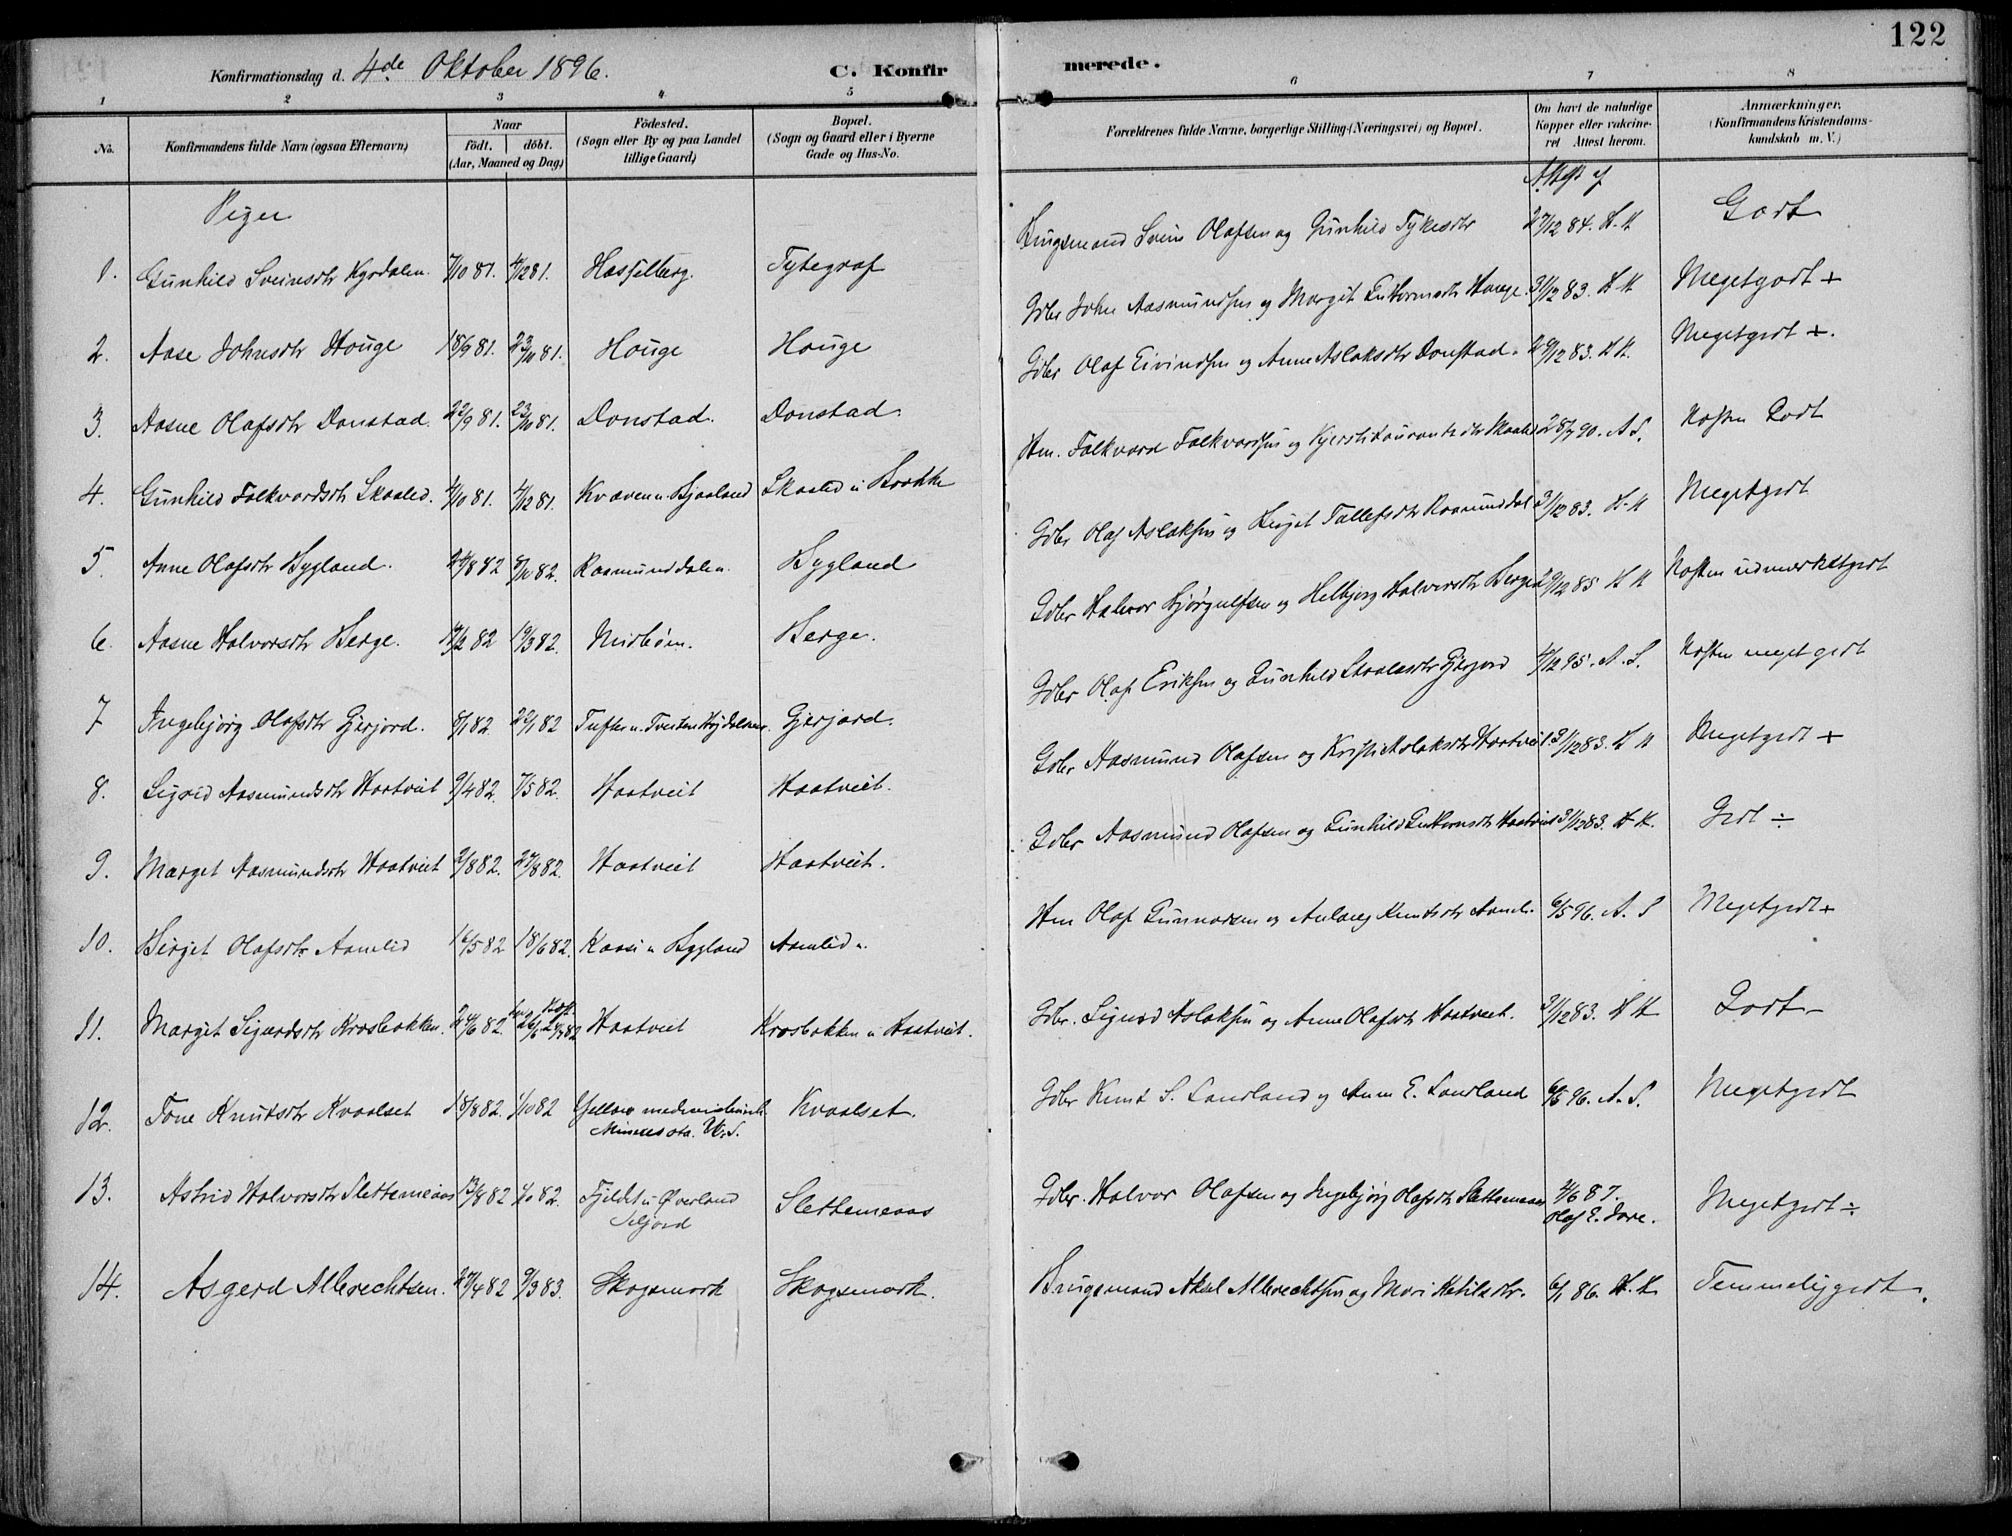 122
Konfirmationsdag d. 4de Oktober 1896.
C. Konfirmerede.
1 2 3 4 5 6 7 8
No.
Konfirmandens fulde Navn (ogsaa Efternavn)
Naar
født. døbt.
(Aar, Maaned og Dag)
Fødested.
(Sogn eller By og paa Landet
tillige Gaard)
Bopæl.
(Sogn og Gaard eller i Byerne
Gade og Hus-No.
Forældrenes fulde Navne, borgerlige Stilling (Næringsvei) og Bopæl.
Om havt de naturlige
Kopper eller vakcine-
ret Attest herom.
Anmærkninger.
(Konfirmandens Kristendoms-
kundskab m. V.)
Piger
Attest af
1. Gunhild Sveinsdtr Kyrdalen. 7/10 81. 4/12 81. Hasselberg. Tytegraf Brugsmand Svein Olafsen og Gunhild Tykesdtr 27/12 84. H. K Godt
2. Aase Johnsdtr Houge 18/9 81. 23/10 81. Houge Houge Gdbr John Aasmundsen og Margit Guttormsdtr Houge. 31/12 83. H K Megetgodt +
3. Aasne Olafsdtr Donstad. 22/9 81. 23/10 81. Donstad. Donstad. Gdbr Olaf Eivindsen og Anne Aslaksdtr Donstad. 29/12 83. H K. Megetgodt +.
4. Gunhild Folkvardsdtr Skaalid. 4/10 81. 4/12 81. Kvæven u. Bjaaland Skaalid u Brokke Hm. Folkvard Folkvardsen og Kjersti Skaalid 28/7 90. A. S. Næsten Godt
5 Anne Olafsdtr Bygland. 24/8 82 8/10 82. Raamunddalen. Bygland Gdbr Olaf Aslaksen og Birget Tallefsdtr Raamunddal 31/12 83. H. K Megetgodt
6. Aasne Halvorsdtr Berge. 17/2 82 19/3 82. Midbøen. Berge. Gdbr Halvor Bjørgulfsen og Helbjørg Halvorsdtr Berge 29/12 85 H K Næsten udmærketgodt
7 Ingebjørg Olafsdtr Gjerjord. 8/1 82. 29/1 82 Tuften u. Tveiten Høidalsmo. Gjerjord. Gdbr Olaf Eriksen og Gunhild Staalesdtr Gjerjord 4/12 95. A. S. Næsten meget godt
8. Sigrid Aasmundsdtr Haatveit 9/4 82. 7/5 82. Haatveit Haatveit. Gdbr Aasmund Olafsen og Kristi Aslaksdtr Haatveit 31/12 83. H K Megetgodt +
9. Marget Aasmundsdtr Haatveit 2/8 82. 27/8 82. Haatveit Haatveit. Gdbr Aasmund Olafsen og Gunhild Guttormsdtr Haatveit 31/12 83. H K. Godt ÷
10. Birget Olafsdtr Aamlid 16/5 82 18/6 82. Kaasi u Bygland Aamlid u. Hm Olaf Gunnarsen og Aslaug Knutsdtr Aamli. 6/5 96. A. S Megetgodt +
11. Marget Sigurdsdtr Krosbakken. 24/6 82. Haatveit Krosbakken u Haatveit. Gdbr. Sigurd Aslaksen og Anne Olafsdtr Haatveit. 31/12 83. H K Godt –
12. Tone Knutsdtr Kvaalset 18/8 82. 1/10 82 Yellow medicine Minnesota. U. S. Kvaalset. Gdbr Knut S. Sandland og Anne E. Sandland 6/5 96. A. S. Megetgodt
13. Astrid Halvorsdtr Slettemeaas 13/8 82 1/10 82. Fjeldet u Øverland Seljord Slettemeaas Gdbr. Halvor Olafsen og Ingebjørg Olafsdtr Slettemeaas 4/6 87. Olaf E. Jore. Megetgodt ÷
14. Asgerd Albrechtsen. 27/4 82 9/3 83. Skogsmork Skogsmork. Brugsmand Aksel Albrechtsen og Mari Ketilsdtr. 6/1 86. H. K Temmeliggodt.